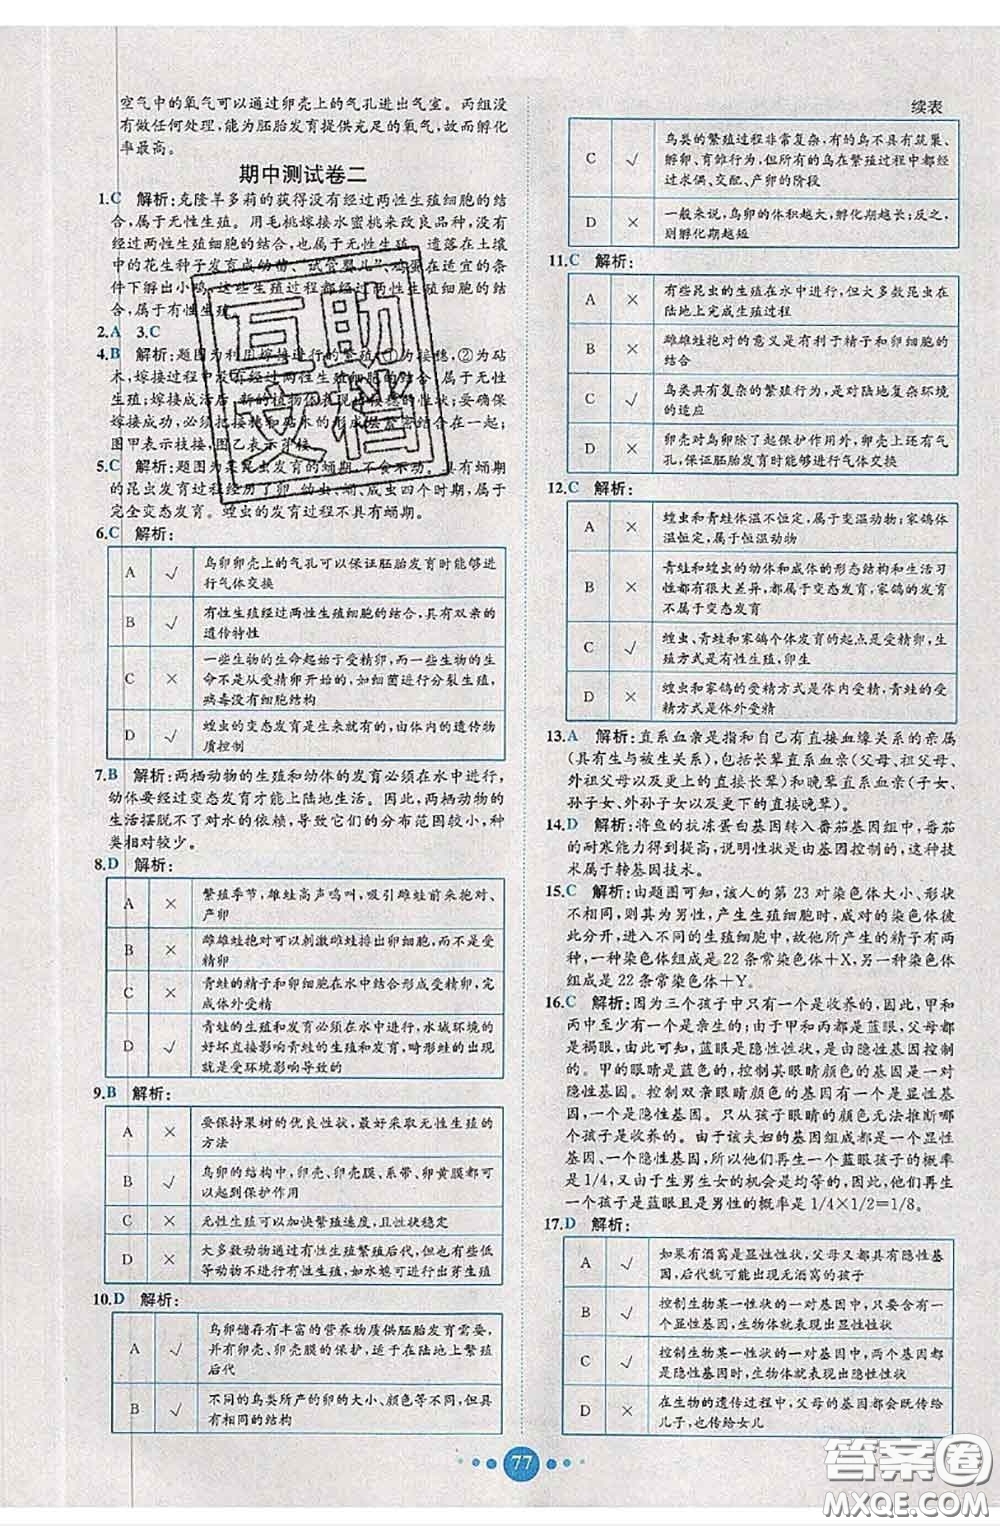 空气中的氧气可以通过卵壳上的气孔进出气室。丙组没
有做任何处理,能为胚胎发育提供充足的氧气,故而孵化
率最高。
期中测试卷二
1.C 解析:克隆羊多莉的获得没有经过两性生殖细胞的结
合,属于无性生殖。用毛桃嫁接水蜜桃来改良品种,没有
经过两性生殖细胞的结合,也属于无性生殖。遗落在土壤
中的花生种子发育成幼苗、“试管婴儿”、鸡蛋在适宜的条
件下孵出小鸡,这些生殖过程都经过两性生殖细胞的结
合,属于有性生殖。
2.A 3.C
4.B 解析:题图为利用嫁接进行的繁殖,①为接穗,②为砧
木,嫁接过程中没有经过两性生殖细胞的结合,属于无性
生殖;嫁接成活后,新的植物体表现接穗的性状;要确保
嫁接成功,必须把接穗和砧木的形成层紧密结合在一起;
图甲表示枝接,图乙表示芽接。
5.C 解析:题图为某昆虫发育的蛹期,不会术动。具有蛹期
的昆虫发育过程经历了卵、幼虫、蛹、成虫四个时期,属于
完全变态发育。蝗虫的发育过程不具有蛹期。
6.C 解析:
A √ 鸟卵卵壳上的气孔可以保证胚胎发育时能够进
行气体交换
B √ 有性生殖经过两性生殖细胞的结合,具有双亲的
遗传特性
C × 一些生物的生命起始于受精卵,而一些生物的生
命不是从受精卵开始的,如细菌进行分裂生殖,
病毒没有细胞结构
D √ 蝗虫的变态发育是生来就有的,由体内的遗传物
质控制
7.B 解析:两栖动物的生殖和幼体的发育必须在水中进行,
幼体要经过变态发育才能上陆地生活。因此,两栖动物的
生活摆脱不了对水的依赖,导致它们的分布范围较小,种
类相对较少。
8.D 解析:
A × 繁殖季节,雄蛙高声鸣叫,吸引雌蛙前来抱对、
产卵
B × 雌雄蛙抱对可以刺激雌蛙排出卵细胞,而不是受
精卵
C × 青蛙的精子和卵细胞在水中结合形成受精卵,完
成体外受精
D √ 青蛙的生殖和发育必须在水中进行,水域环境的
好坏直接影响青蛙的生殖和发育,畸形蛙的出现
就是受环境影响导致的
9.B 解析:
A × 要保持果树的优良性状,最好采取无性生殖的
方法
B √ 鸟卵的结构中,卵壳、卵壳膜、系带、卵黄膜都可
以起到保护作用
C × 无性生殖可以加快繁殖速度,且性状稳定
D × 大多数动物通过有性生殖繁殖后代,但也有些低
等动物不进行有性生殖,如水螅可进行出芽生殖
10.D 解析:
A √ 鸟卵储存有丰富的营养物质供胚胎发育需要,
并有卵壳、卵壳膜的保护,适于在陆地上繁殖
后代
B √ 不同的鸟类所产的卵的大小、颜色等不同,但具
有相同的结构
续表
C √ 鸟类的繁殖过程非常复杂,有的鸟不具有筑巢、
孵卵、育雏行为,但所有的鸟在繁殖过程中都经
过求偶、交配、产卵的阶段
D × 一般来说,鸟卵的体积越大,孵化期越长;反之,
则孵化期越短
11.C 解析:
A × 有些昆虫的生殖在水中进行,但大多数昆虫在
陆地上完成生殖过程
B × 雌雄蛙抱对的意义是有利于精子和卵细胞
的结合
C √ 鸟类具有复杂的繁殖行为,是对陆地复杂环境
的适应
D × 卵壳对鸟卵除了起保护作用外,卵壳上还有气
孔,保证胚胎发育时能够进行气体交换
12.C 解析:
A × 蝗虫和青蛙体温不恒定,属于变温动物;家鸽体
温恒定,属于恒温动物
B × 青蛙和蝗虫的幼体和成体的形态结构和生活习
性都有很大差异,都属于变态发育,家鸽的发育
不属于变态发育
C √ 蝗虫、青蛙和家鸽个体发育的起点是受精卵,生
殖方式是有性生殖,卵生
D × 蝗虫和家鸽的受精方式是体内受精,青蛙的受
精方式是体外受精
13.A 解析:直系血亲是指和自己有直接血缘关系的亲属
(具有生与被生关系),包括长辈直系血亲(父母、祖父母、
外祖父母以及更上的直接长辈)和晚辈直系血亲(子女、
孙子女、外孙子女以及更下的直接晚辈)。
14.D 解析:将鱼的抗冻蛋白基因转入番茄基因组中,番茄
的耐寒能力得到提高,说明性状是由基因控制的,这种技
术属于转基因技术。
15.C 解析:由题图可知,该人的第23对染色体大小、形状
不相同,则其为男性,产生生殖细胞时,成对的染色体彼
此分开,进入不同的生殖细胞中,故他所产生的精子有两
种,一种染色体组成是22条常染色体+X,另一种染色体
组成是22条常染色体+Y。
16.C 解析:因为三个孩子中只有一个是收养的,因此,甲和
丙中至少有一个是亲生的;由于甲和丙都是蓝眼,父母都
是褐眼,由此可知,蓝眼是隐性性状,是由隐性基因控制
的。甲的眼睛是蓝色的,控制其眼睛颜色的基因是一对
隐性基因。控制双亲眼睛颜色的基因都是一个是显性基
因,一个是隐性基因。只从孩子眼睛的颜色无法推断哪
个是收养的。由于该夫妇的基因组成都是一个显性基
因、一个隐性基因,因此他们再生一个蓝眼孩子的概率
是1/4,又由于生男生女的机会是均等的,因此,他们再生
一个孩子是蓝眼且是男性的概率是1/4×1/2=1/8。
17.D 解析:
A √ 如果有酒窝是显性性状,父母又都具有隐性基
因,后代就可能出现无酒窝的孩子
B √ 控制生物某一性状的一对基因中,只要含有一个
显性基因,生物体就表现出显性性状
C √ 控制生物某一性状的一对基因中,只有两个基因
都是隐性基因时,生物体才能表现出隐性性状
D × 在生物的遗传过程中,父母的基因都会既传给
儿子,也传给女儿
77
互助
文档
答案圈
MXQE.COM